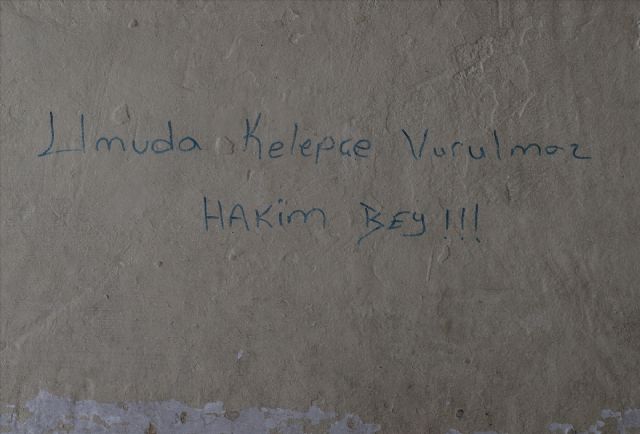 Umuda Kelepçe Vurulmaz
HAKim BEy!!!